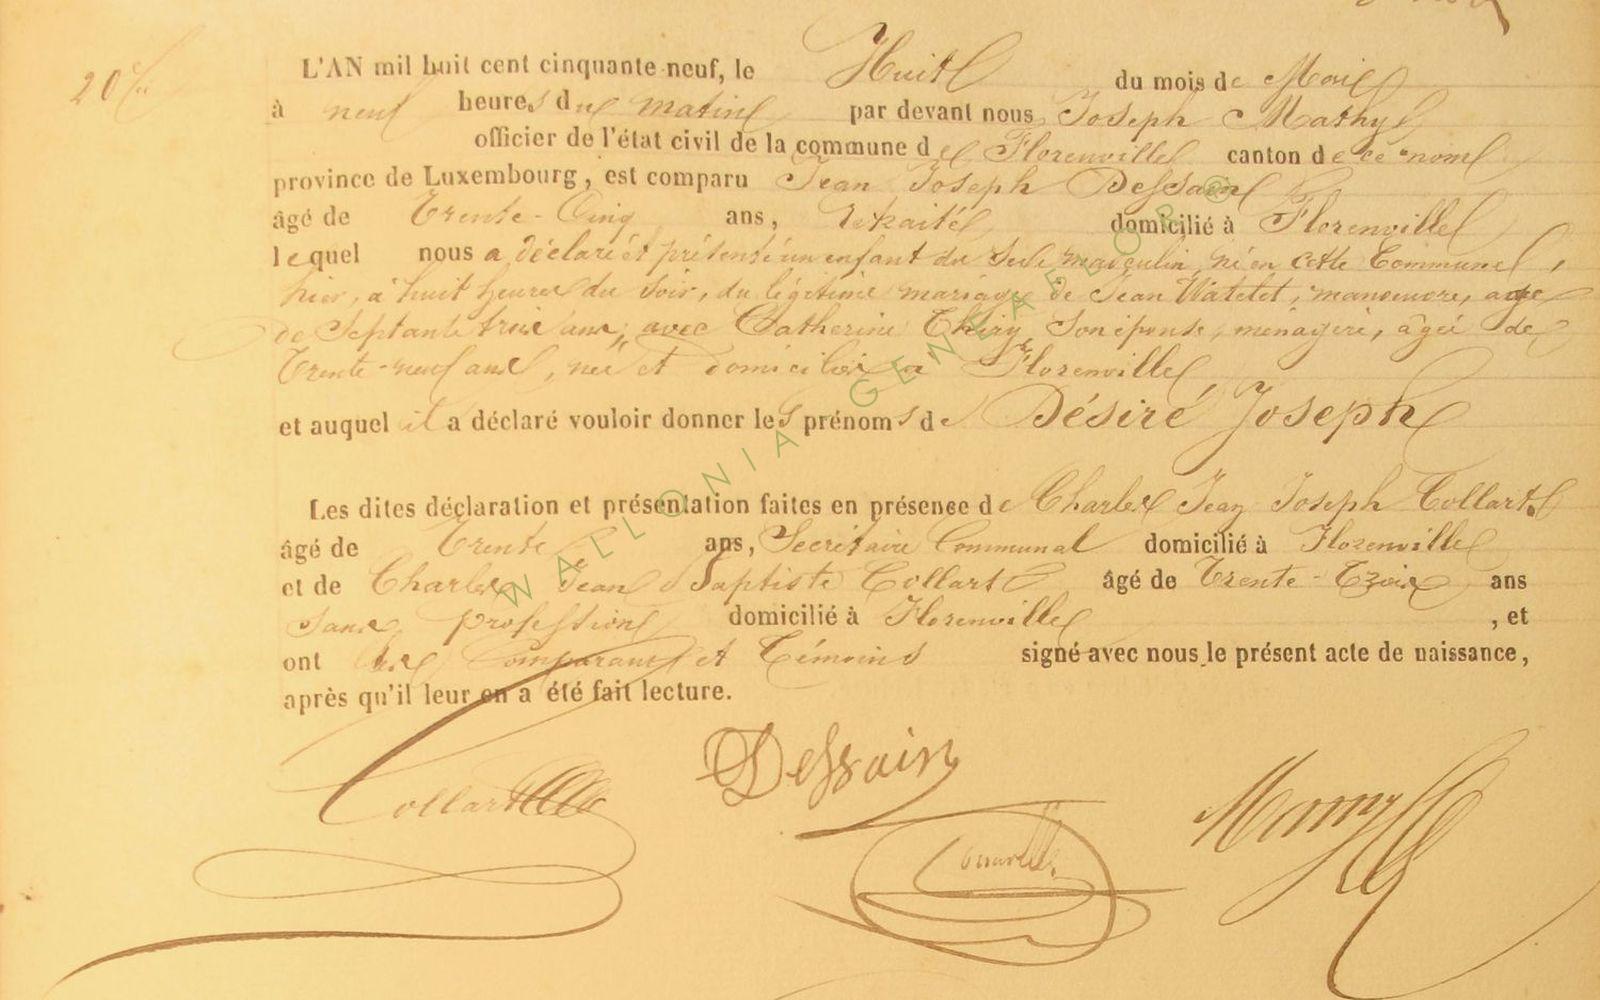 20
L'AN mil huit cent cinquante-neuf, le Huit du mois de Mai
à neuf heures du matin par devant nous Joseph Mathy
officier de l'état civil de la commune de Florenville canton de ce nom
province de Luxembourg, est comparu Jean Joseph Dessain
âgé de Trente-Cinq ans, retraité domicilié à Florenville
lequel nous a déclaré et présenté un enfant du sexe masculin, né en cette Commune,
hier, à huit heures du soir, du légitime mariage de Jean Watelet, manoeuvre, age
de Septante trois ans, avec Catherine Thiry, son épouse, ménagère, âgée de
Trente-neuf ans, née et domiciliés a Florenville
et auquel il a déclaré vouloir donner les prénoms de Désiré Joseph
Les dites déclaration et présentation faites en présence de Charles Jean Joseph Collart
âgé de Trente ans, Secrétaire Communal domicilié à Florenville
et de Charles Jean Baptiste Collart âgé de Trente-Trois ans
sans profession domicilié à Florenville, et
ont les Comparant et Témoins signé avec nous le présent acte de naissance,
après qu'il leur en a été fait lecture.
Collart Dessain Mathy
WALLONIA GENEAFLOR ®